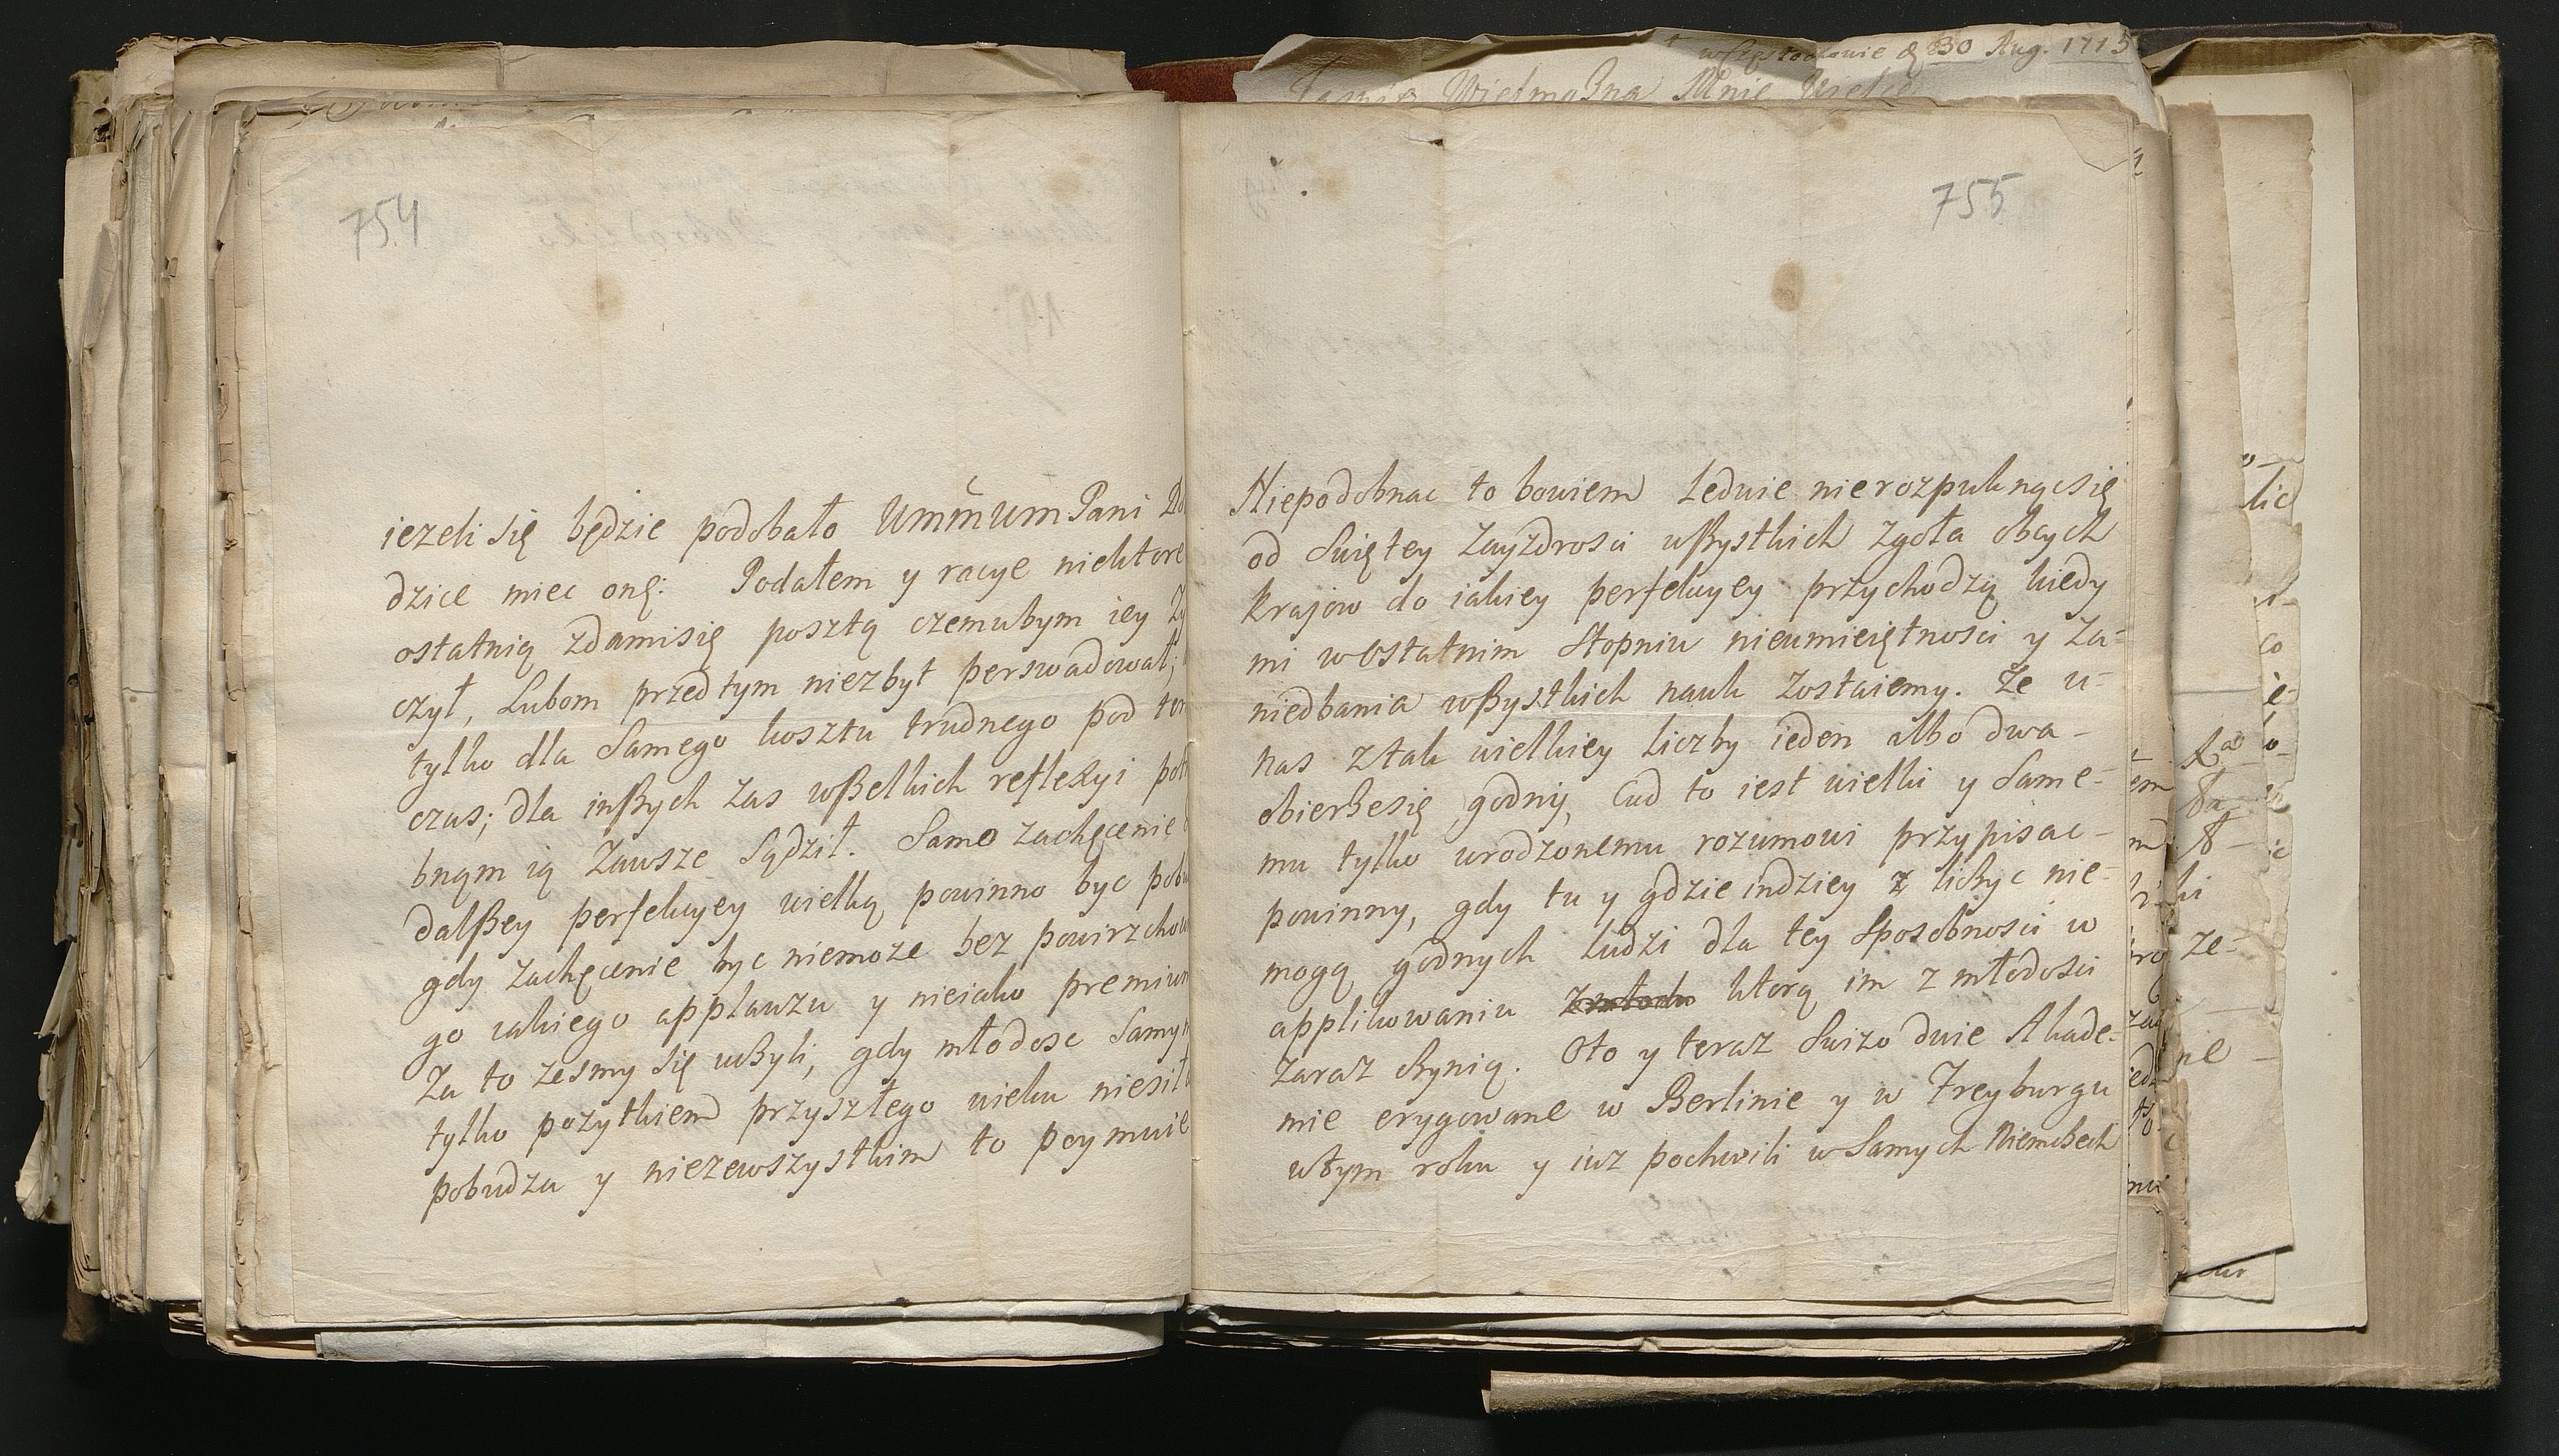 754
iezeli się będzie podobało UmmumPani Do
dzice miec onę: Podałem y racye niektore
ostatnią zdamisię posztą czemubym iey Zy
czył, Lubom przedtym niezbyt perswadował;
tylko dla Samego kosztu trudnego pod ten
czas; dla inßych zas wßelkich reflexyi potr
bnąm ią Zawsze Sądził. Samo zachęcenie
dalßey perfekcyey wielką powinno byc pobu
gdy zachęcenie byc niemoze bez powirzchow
go iakiego applauzu y nieiako premium
Za to zesmy się uczyli, gdy młodosc Samym
tylko pozytkiem przyszłego wieku niesiła
pobudza y niezewszystkim to poymuie
w Częstochowie d 30 Aug. 1715
Jasnie Wielmożna Mnie Wielce
755
Niepodobnac to bowiem Ledwie nierozpuknącsię
od Swiętey Zayzdrosci wßystkich zgoła obcych
krajow do iakiey perfekcyey przychodzą kiedy
mi w ostatnim Stopniu nieumieiętnosci y Za-
niedbania wßystkich nauk Zostaiemy. Że u-
nas z tak wielkiey Liczby ieden albo dwa-
obierzesię godny, Cud to iest wielki y Same-
mu tylko urodzonemu rozumowi przypisac-
powinny, gdy tu y gdzie indziey z liczyc nie-
mogą godnych Ludzi dla tey Sposobnosci w
applikowaniu zmłodu ktorą im z młodosci
Zaraz czynią. Oto y teraz Swizo dwie Akade-
mie erygowane w Berlinie y w Freyburgu
wtym roku y iuz pochwili w Samych Niemczech